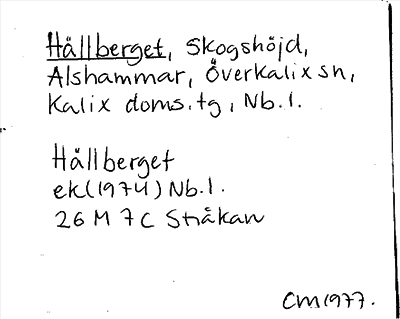 Hållberget, Skogshöjd,
Alshammar, Överkalix sn,
Kalix doms.tg, Nb.l.
Hållberget
ek(1974) Nb.l.
26 M 7 C Stråkan
CM1977.